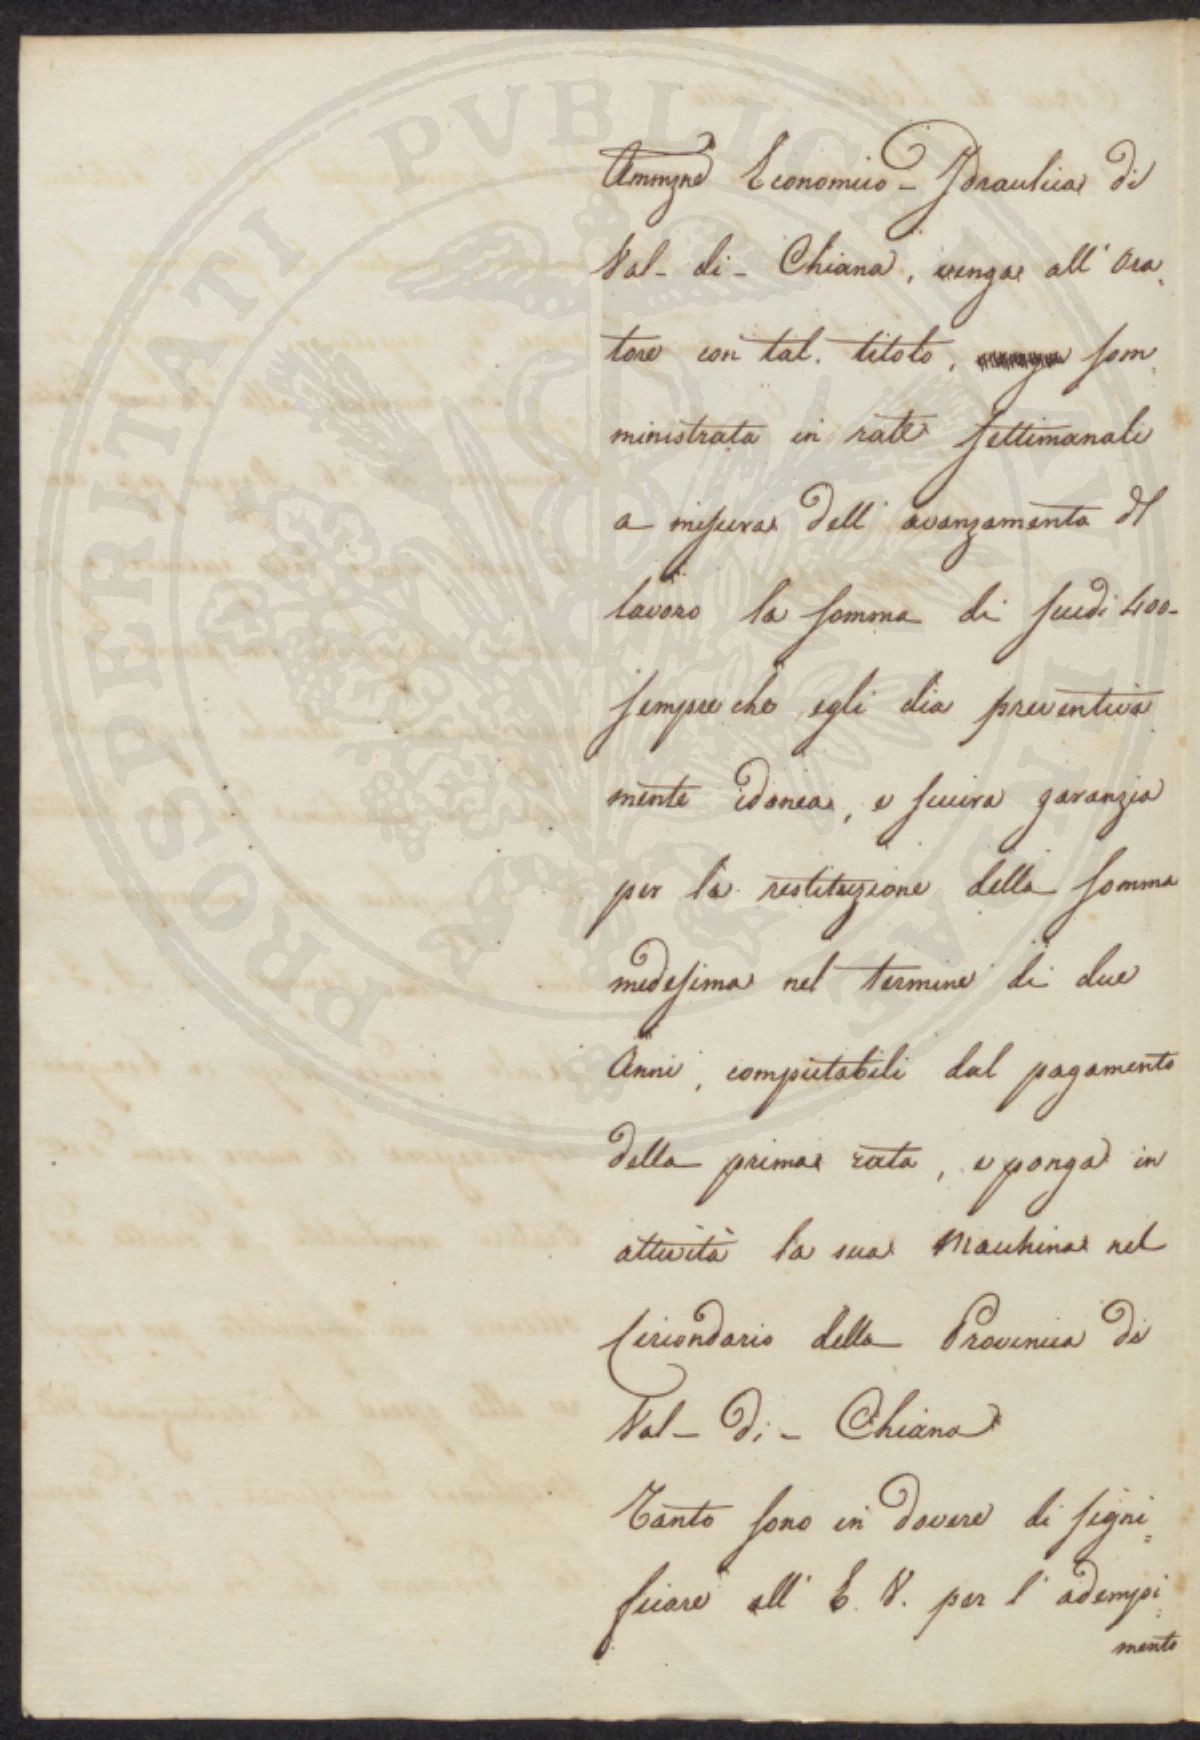 Ammzne Economico - Idraulica di
Val - di - Chiana, venga all' Ora,
tore con tal. titolo, som,
ministrata in rate settimanali
a misura dell' avanzamento del
lavoro la somma di scudi 400-
sempre che egli dia preventiva
mente idonea, e sicura garanzia
per la restituzione della somma
medesima nel termine di due
Anni, computabili dal pagamento
della prima rata, e ponga in
attività la sua Macchina nel
Circondario della Provincia di
Val - di - Chiana
Tanto sono in dovere di signi=
ficare all' E. V. per l' adempi=
mento
PROSPERITATI PUBLICAE